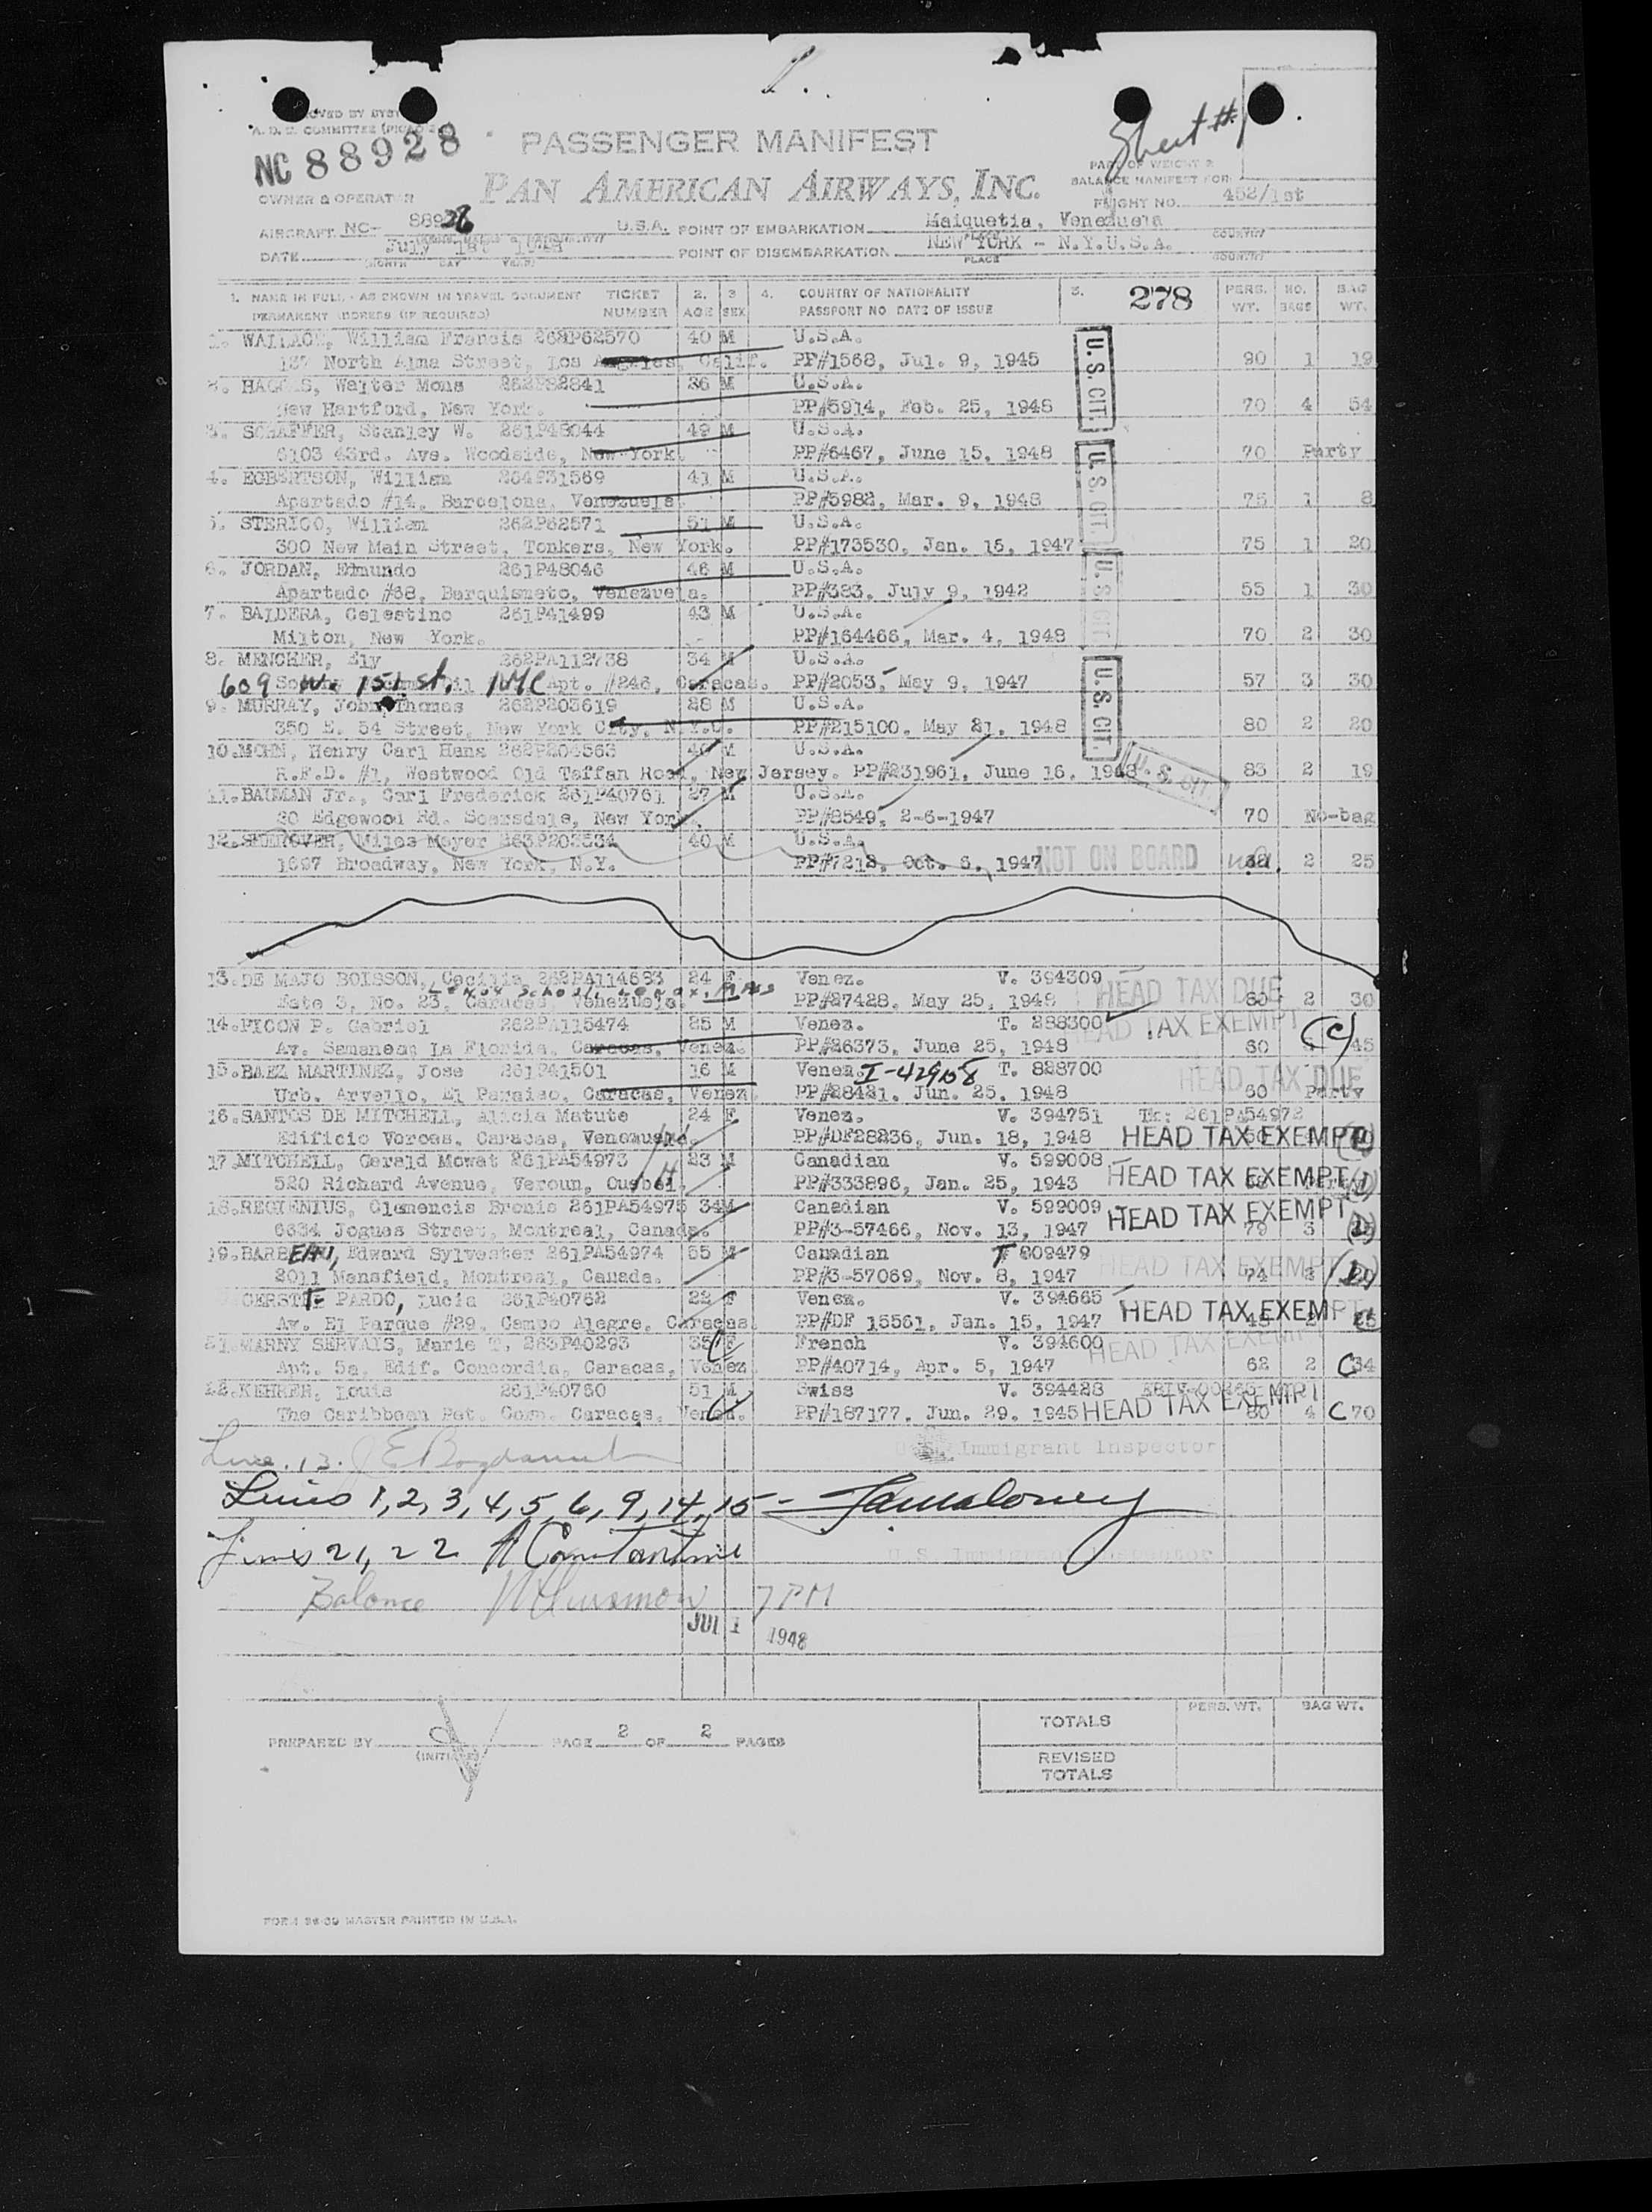 Sheet #1
NC 88928
PASSENGER MANIFEST
PAN AMERICAN AIRWAYS, INC.
OWNER & OPERATOR
PART OF WEIGHT &
BALANCE MANIFEST FOR
FLIGHT NO. 452/1st
AIRCRAFT NC- 88928 U.S.A. POINT OF EMBARKATION Maiquetia, Venezuela COUNTRY
DATE July 1st 1948 POINT OF DISEMBARKATION NEW YORK - N.Y.U.S.A.
(MONTH DAY YEAR) PLACE COUNTRY
1. NAME IN FULL - AS SHOWN IN TRAVEL DOCUMENT TICKET 2. 3 4. COUNTRY OF NATIONALITY 5. 278 PERS. NO. BAG
PERMANENT ADDRESS (IF REQUIRED) NUMBER AGE SEX PASSPORT NO DATE OF ISSUE WT. BAGS WT.
1. WALLACE, William Francis 262P62570 40 M U.S.A.
137 North Alma Street, Los Angeles, Calif. PP#1568, Jul. 9, 1945 U.S. CIT. 90 1 19
2. Walter Mons 262P82841 36 M U.S.A.
New Hartford, New York. PP#5914, Feb. 25, 1948 70 4 54
3. SCHAFFER, Stanley W. 261P48044 49 M U.S.A.
6103 43rd. Ave. Woodside, New York. PP#6467, June 15, 1948 U.S. CIT. 70 Party
4. EGBERTSON, William 264P31569 41 M U.S.A.
Apartado #14, Barcelona, Venezuela. PP#5982, Mar. 9, 1948 75 1 8
5. STERICO, William 262P62571 51 M U.S.A.
300 New Main Street, Tonkers, New York. PP#173530, Jan. 15, 1947 75 1 20
6. JORDAN, Edmundo 261P48046 46 M U.S.A.
Apartado #68, Barquismeto, Venezuela. PP#383, July 9, 1942 U.S. CIT. 55 1 30
7. BALDERA, Celestino 261P41499 43 M U.S.A.
Milton, New York. PP#164466, Mar. 4, 1948 70 2 30
8. MENCHER, Ely 262PA112738 34 M U.S.A.
609 W. 151 St. NYC Apt. #246, Caracas. PP#2053, May 9, 1947 U.S. CIT. 57 3 30
9. MURRAY, John Thomas 262P203619 28 M U.S.A.
350 E. 54 Street, New York City, N.Y.C. PP#215100, May 21, 1948 80 2 20
10. MOHN, Henry Carl Hans 262P204563 40 M U.S.A.
R.F.D. #1, Westwood Old Taffan Road, New Jersey. PP#231961, June 16, 1948 U.S. CIT. 83 2 19
11. BAUMAN Jr., Carl Frederick 261P40761 27 M U.S.A.
20 Edgewood Rd. Scarsdale, New York. PP#8549, 2-6-1947 70 No-bag
12. Miles Meyer 263P203534 40 M U.S.A.
1697 Broadway, New York, N.Y. PP#7218, Oct. 6, 1947 NOT ON BOARD 2 25
13. DE MAJO BOISSON, Cecilia 262PA114683 24 F Venez. V. 394309
No. 23, Caracas, Venezuela. PP#27428, May 25, 1948 HEAD TAX DUE 2 30
14. PICON P. Gabriel 262PA115474 25 M Venez. T. 288300
Av. Samanes, La Florida, Caracas, Venez. PP#26373, June 25, 1948 HEAD TAX EXEMPT 60 (C) 45
15. BAEZ MARTINEZ, Jose 261P41501 16 M Venez. I-42958 T. 828700
Urb. Arvello, El Paraiso, Caracas, Venez. PP#28421, Jun. 25, 1948 HEAD TAX DUE 60 Party
16. SANTOS DE MITCHELL, Alicia Matute 24 F Venez. V. 394751 Tk: 261PA54972
Edificio Voroas, Caracas, Venezuela. PP#DF28236, Jun. 18, 1948 HEAD TAX EXEMPT
17. MITCHELL, Gerald Mowat 261PA54973 23 M Canadian V. 599008
520 Richard Avenue, Veroun, PP#333896, Jan. 25, 1943 HEAD TAX EXEMPT
18. REGIENIUS, Clemencis Bronis 261PA54975 34 M Canadian V. 599009
6634 Jogues Street, Montreal, Canada. PP#3-57466, Nov. 13, 1947 HEAD TAX EXEMPT 79 3
19. BARBEAU, Edward Sylvester 261PA54974 55 M Canadian T 609479
2011 Mansfield, Montreal, Canada. PP#3-57069, Nov. 8, 1947 HEAD TAX EXEMPT 74
PARDO, Lucia 261P40762 22 F Venez. V. 394665
Av. El Parque #29, Campo Alegre, Caracas. PP#DF 15561, Jan. 15, 1947 HEAD TAX EXEMPT
21. MARNY SERVAIS, Marie T. 263P40293 35 F French V. 394600
Apt. 5a, Edif. Concordia, Caracas, Venez. PP#40714, Apr. 5, 1947 HEAD TAX EXEMPT 62 2 C 34
22. KEHRER, Louis 261P40760 51 M Swiss V. 394428
The Caribbean Pet. Com. Caracas, Venez. PP#187177, Jun. 29, 1945 HEAD TAX EXEMPT 80 4 C 70
Line 13.
U.S. Immigrant Inspector
Lines 1, 2, 3, 4, 5, 6, 9, 14, 15 - Jamaloney
Lines 21, 22 A Constantine
U.S. Immigrant Inspector
Balance 7 PM
JUL 1 1948
PERS. WT. BAG WT.
TOTALS
PREPARED BY (INITIALS) PAGE 2 OF 2 PAGES
REVISED
TOTALS
FORM MASTER PRINTED IN U.S.A.